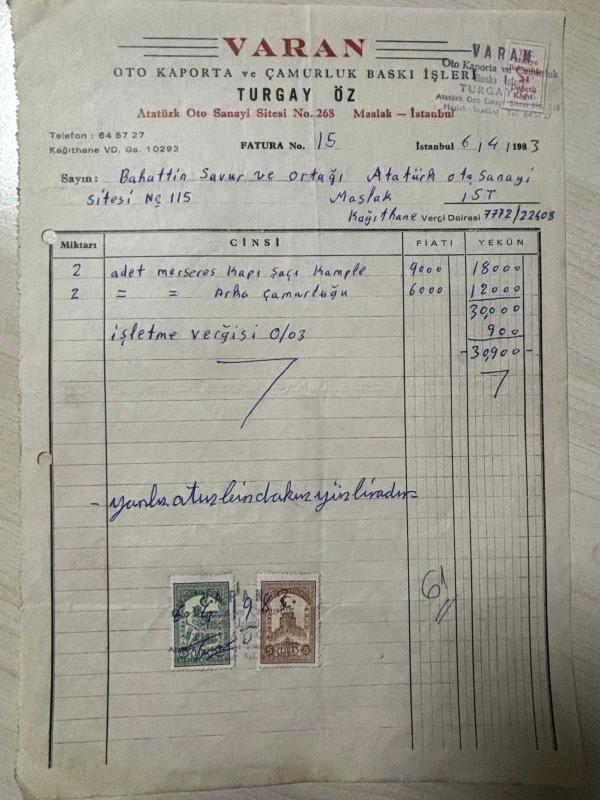 VARAN
OTO KAPORTA ve ÇAMURLUK BASKI İŞLERİ
TURGAY ÖZ
Atatürk Oto Sanayi Sitesi No. 268 Maslak — İstanbul
VARAN
Oto Kaporta ve Çamurluk
Baskı İşleri
TURGAY
Telefon : 64 57 27
Kağıthane VD. Ga. 10293
FATURA No. 15
İstanbul 6/4/1983
Sayın: Bahattin Savur ve ortağı Atatürk oto sanayi
sitesi No 115 Maslak İST
Kağıthane Vergi Dairesi 7772/22408
Miktarı CİNSİ FİATI YEKÜN
2 adet merseres Kapı Saçı Kample 9000 18000
2 = = Arka Çamurluğu 6000 12000
30,000
işletme verğisi 0/03 900
-30,900-
61
5 5